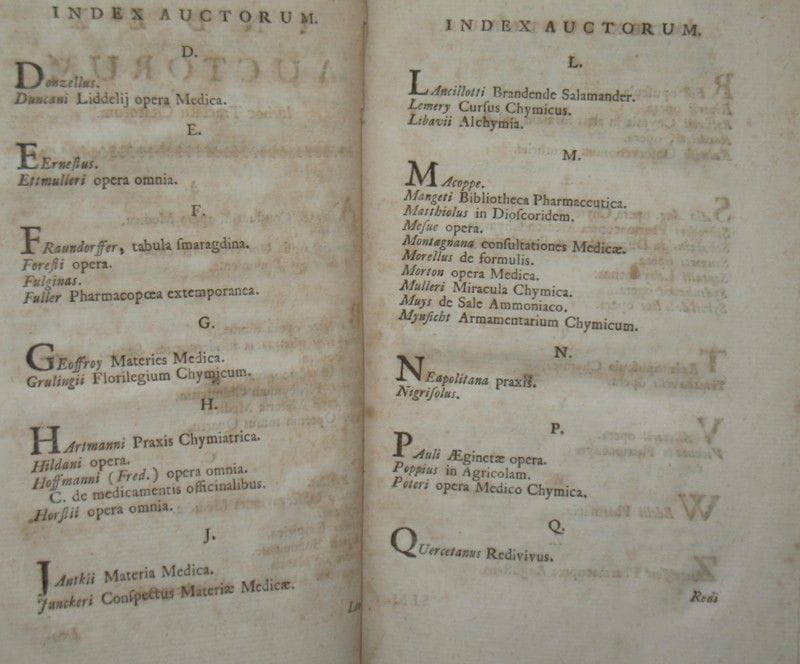 INDEX AUCTORUM.
D.
Donzellus.
Duncani Liddelij opera Medica.
E.
EErneſtus.
Ettmulleri opera omnia.
F.
FRaundorffer, tabula ſmaragdina.
Foreſti opera.
Fulginas.
Fuller Pharmacopœa extemporanea.
G.
GEoffroy Materies Medica.
Grulingii Florilegium Chymicum.
H.
HArtmanni Praxis Chymiatrica.
Hildani opera.
Hoffmanni (Fred.) opera omnia.
C. de medicamentis officinalibus.
Horſtii opera omnia.
J.
JAntkii Materia Medica.
Junckeri Conſpectus Materiæ Medicæ.
INDEX AUCTORUM.
L.
LAncillotti Brandende Salamander.
Lemery Curſus Chymicus.
Libavii Alchymia.
M.
MAcoppe.
Mangeti Bibliotheca Pharmaceutica.
Matthiolus in Dioſcoridem.
Meſue opera.
Montagnana conſultationes Medicæ.
Morellus de formulis.
Morton opera Medica.
Mulleri Miracula Chymica.
Muys de Sale Ammoniaco.
Mynſicht Armamentarium Chymicum.
N.
NEapolitana praxis.
Nigriſolus.
P.
PAuli Æginetæ opera.
Poppius in Agricolam.
Poteri opera Medico Chymica.
Q.
QUercetanus Redivivus.
Redi